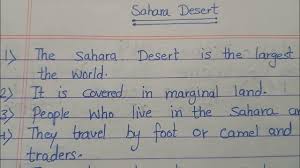 Sahara Desert
1) The Sahara Desert is the largest
the world.
2) It is covered in marginal land.
3) People who live in the Sahara a
4) They travel by foot or camel and
traders.